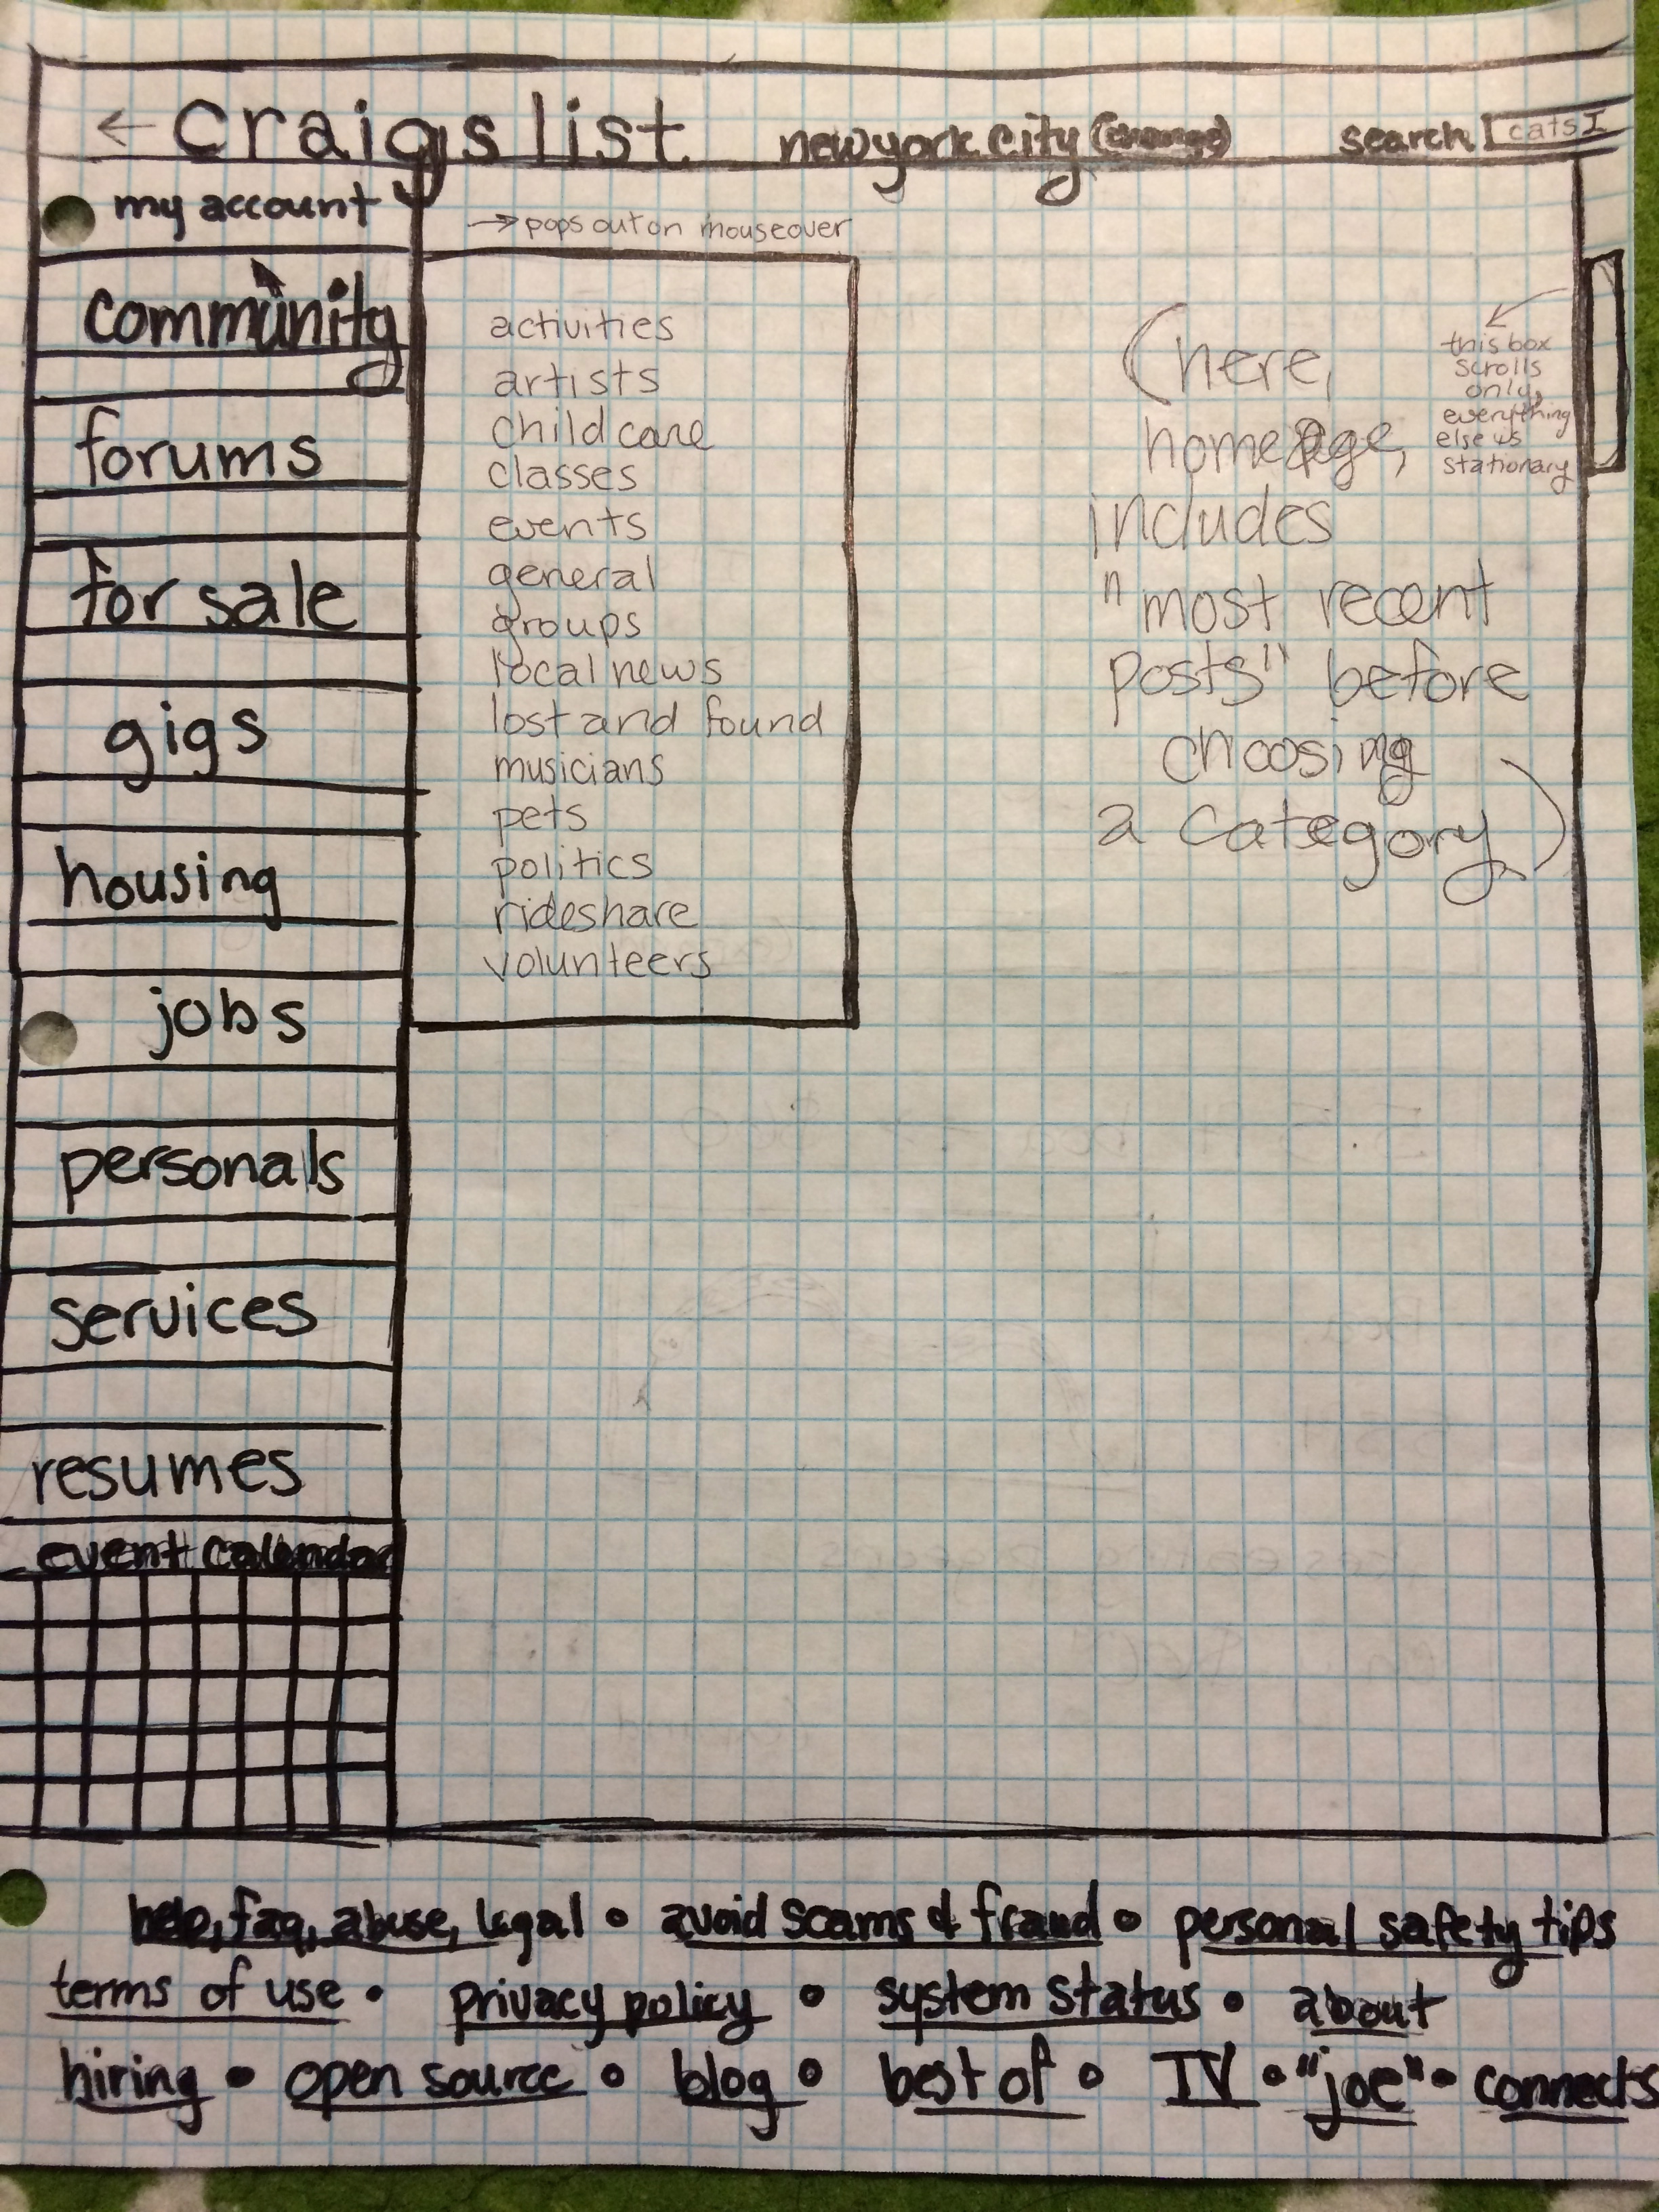 ← craigslist newyork city (change) search cats
my account
→ pops out on mouseover
community
forums
for sale
gigs
housing
jobs
personals
services
resumes
event calendar
activities
artists
childcare
classes
events
general
groups
local news
lost and found
musicians
pets
politics
rideshare
volunteers
(here,
homepage,
includes
"most recent
posts" before
choosing
a category)
this box
scrolls
only,
everything
else is
stationary
help, faq, abuse, legal • avoid scams & fraud • personal safety tips
terms of use • privacy policy • system status • about
hiring • open source • blog • best of • IV • "joe" • connects